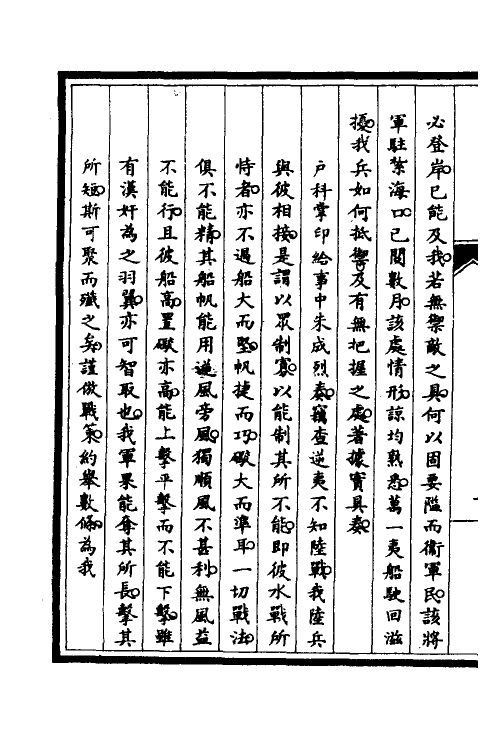 必登岸。已能及我。若無禦敵之具。何以固要隘而衞軍民。該將
軍駐紮海口。已閱數月。該處情形。諒均熟悉。萬一夷船駛回滋
擾。我兵如何抵禦。及有無把握之處。著據實具奏。
戶科掌印給事中朱成烈奏。竊查逆夷不知陸戰。我陸兵
與彼相接。是謂以眾制寡。以能制其所不能。即彼水戰所
恃者。亦不過船大而堅。帆捷而巧。礮大而準耳。一切戰法。
俱不能精。其船帆能用逆風旁風。獨順風不甚利。無風益
不能行。且彼船高。置礮亦高。能上擊平擊而不能下擊。雖
有漢奸為之羽翼。亦可智取也。我軍果能奪其所長。擊其
所短。斯可聚而殲之矣。謹倣戰策。約舉數條。為我